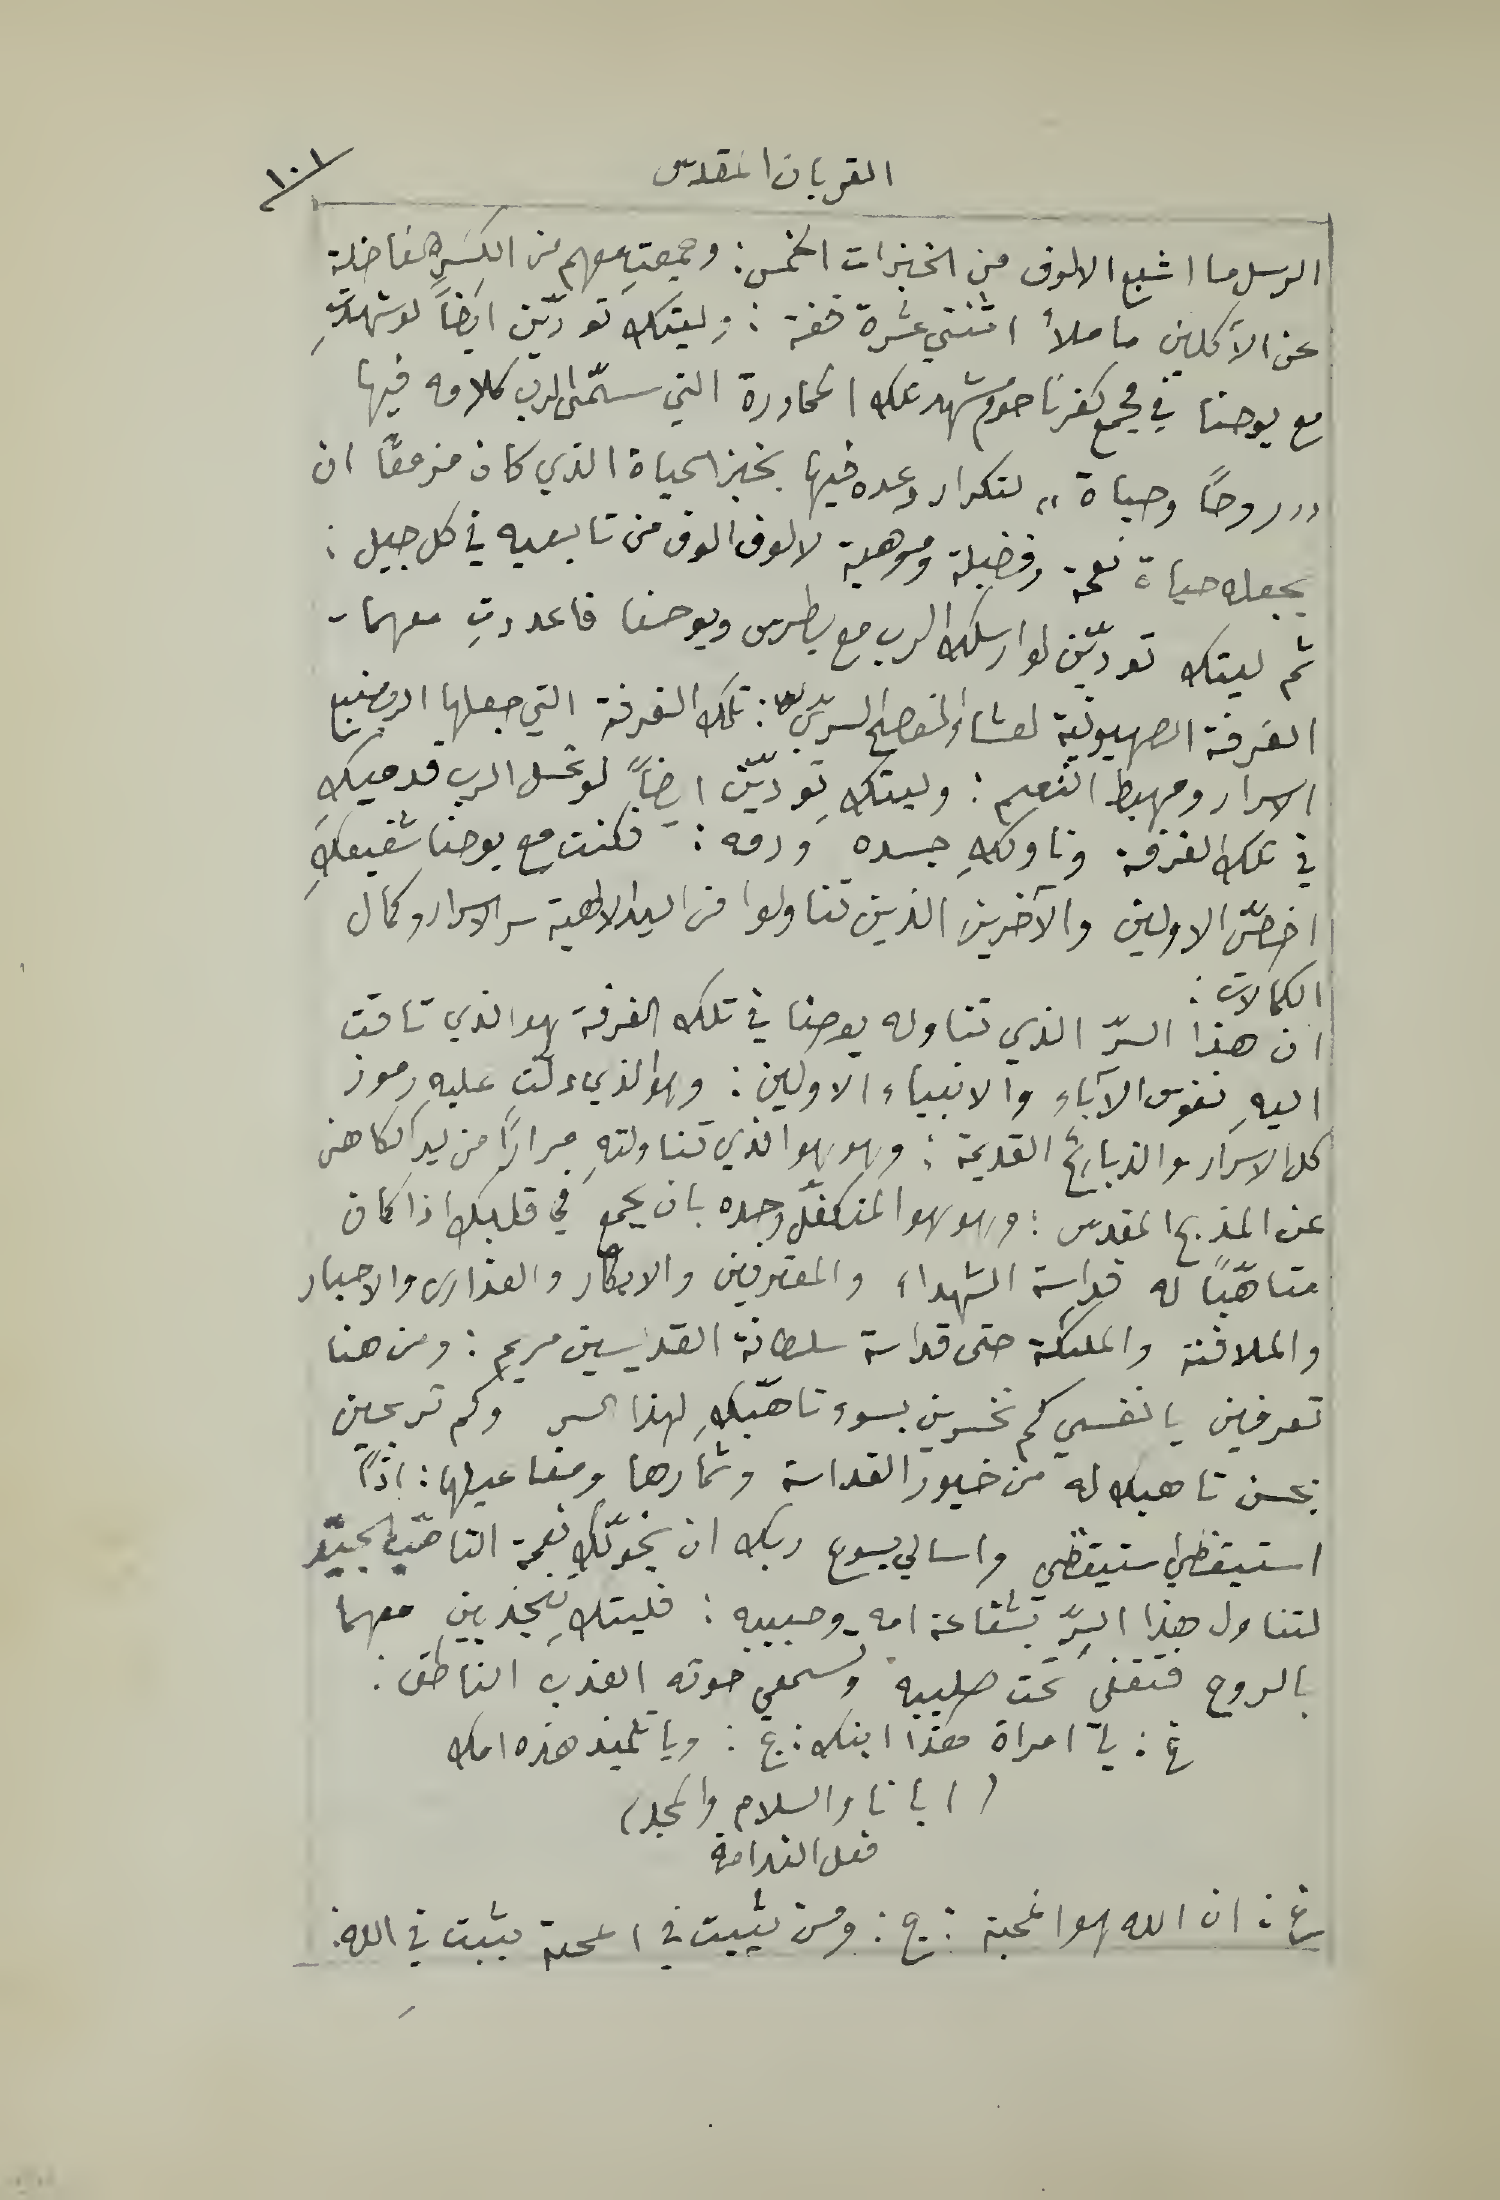 القربان المقدس
١٠١
الرسل ما اشبع الالوف من الخبزات الخمس: وجمعتِ معهم من الكِسَرِ الفاضلة
عن الآكلين ما ملأ اثنتي عشرة قفة: وليتكِ تودّين ايضاً لو شهدتِ
مع يوحنا في مجمع كفرناحوم مشهد تلك المحاورة التي سمّى الرب كلامه فيها
"روحًا وحياة" لتكرار وعده فيها بخبز الحياة الذي كان مزمعًا ان
يجعله حياة نعمة وفضيلة وموهبة لالوف الوف من تابعيه في كل جيل:
ثم ليتك تودّين لو ارسلك الرب مع بطرس ويوحنا فاعددتِ معهما
الغرفة الصهيونية لعشاء الفصح السرّي: تلك الغرفة التي جعلها الرب منبع
الاسرار ومهبط النعيم: وليتكِ تودّين ايضاً لو غسل الرب قدميكِ
في تلك الغرفة وناولكِ جسده ودمه: فكنت مع يوحنا شفيعكِ
اخصّ الاولين والآخرين الذين تناولوا من اليد الالهية سر الاسرار وكمال
الكمالات:
ان هذا السرّ الذي تناوله يوحنا في تلك الغرفة هو الذي تاقت
اليهِ نفوس الآباء والانبياء الاولين: وهو الذي دلّت عليهِ رموز
كل الاسرار والذبائح القديمة: وهو هو الذي تناولتهِ مرارًا من يد الكاهن
عن المذبح المقدس: وهو هو المتكفّل وحده بان يجمع في قلبك اذا كان
متاهّبًا له قداسة الشهداء والمعترفين والابكار والعذارى والاحبار
والملافنة والملئكة حتى قداسة سلطانة القديسين مريم: ومن هنا
تعرفين يا نفسي كم تخسرين بسوء تاهّبكِ لهذا السر وكم تربحين
بحسن تاهبك له من خيور القداسة وثمارها ومفاعيلها: اذًا
استيقظي استيقظي واسالي يسوع ربك ان يخوّلكِ نعمة التاهّب الجيّد
لتناول هذا السرّ بشفاعة امه وحبيبه: فليتكِ تنجذبين معهما
بالروح فتقفي تحت صليبه وتسمعي صوته العذب الناطق:
غ: يا امراة هذا ابنك: ج: ويا تلميذ هذه امك
(ابانا والسلام والمجد)
فعل الندامة
غ: ان الله هو المحبة: ج: ومن يثبت في المحبة يثبت في الله: